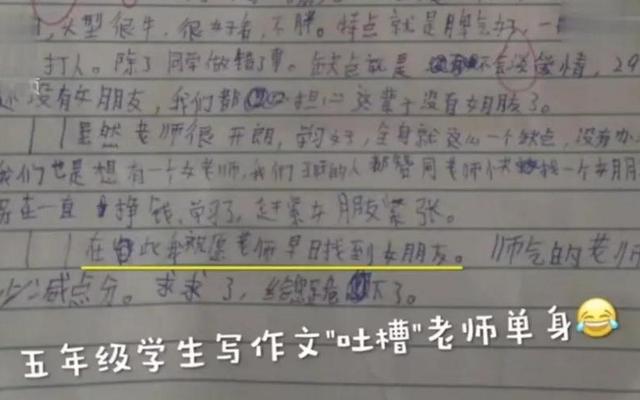 大型很牛，很好看，不胖。特点就是脾气好，一
打人。除了同学做错了事。缺点就是不会谈爱情，29
还没有女朋友，我们都担心这辈子没有女朋友了。
虽然老师很开朗，学习好，全身就这么一个缺点，没有办
我们也是想有一个女老师，我们班的人都赞同老师快找一个女朋
在一直挣钱，单了，赶紧女朋友紧张。
在此我就愿老师早日找到女朋友。帅气的老师
少减点分。求求了，
五年级学生写作文"吐槽"老师单身😂